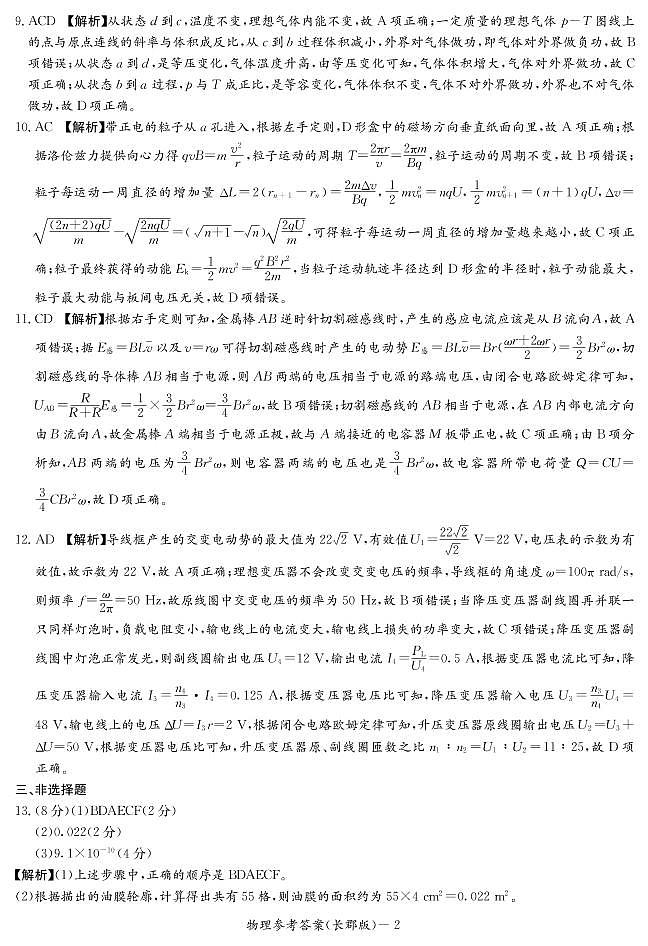 9. ACD 【解析】从状态 d 到 c,温度不变,理想气体内能不变,故 A 项正确;一定质量的理想气体 p－T 图线上
的点与原点连线的斜率与体积成反比,从 c 到 b 过程体积减小,外界对气体做功,即气体对外界做负功,故 B
项错误;从状态 a 到 d,是等压变化,气体温度升高,由等压变化可知,气体体积增大,气体对外界做功,故 C
项正确;从状态 b 到 a 过程,p 与 T 成正比,是等容变化,气体体积不变,气体不对外界做功,外界也不对气体
做功,故 D 项正确。
10. AC 【解析】带正电的粒子从 a 孔进入,根据左手定则,D 形盒中的磁场方向垂直纸面向里,故 A 项正确;根
据洛伦兹力提供向心力得 qvB=m v²/r,粒子运动的周期 T=2πr/v=2πm/Bq,粒子运动的周期不变,故 B 项错误;
粒子每运动一周直径的增加量 ΔL=2(rₙ₊₁－rₙ)=2mΔv/Bq,1/2 mvₙ²=nqU,1/2 mvₙ₊₁²=(n+1)qU,Δv=
√((2n+2)qU/m)－√(2nqU/m)=(√(n+1)－√n)√(2qU/m),可得粒子每运动一周直径的增加量越来越小,故 C 项正
确;粒子最终获得的动能 Eₖ=1/2 mv²=q²B²r²/2m,当粒子运动轨迹半径达到 D 形盒的半径时,粒子动能最大,
粒子最大动能与板间电压无关,故 D 项错误。
11. CD 【解析】根据右手定则可知,金属棒 AB 逆时针切割磁感线时,产生的感应电流应该是从 B 流向 A,故 A
项错误;据 E感=BLv̄ 以及 v=rω 可得切割磁感线时产生的电动势 E感=BLv̄=Br(ωr+2ωr/2)=3/2 Br²ω,切
割磁感线的导体棒 AB 相当于电源,则 AB 两端的电压相当于电源的路端电压,由闭合电路欧姆定律可知,
U_AB=R/(R+R) E感=1/2×3/2 Br²ω=3/4 Br²ω,故 B 项错误;切割磁感线的 AB 相当于电源,在 AB 内部电流方向
由 B 流向 A,故金属棒 A 端相当于电源正极,故与 A 端接近的电容器 M 板带正电,故 C 项正确;由 B 项分
析知,AB 两端的电压为 3/4 Br²ω,则电容器两端的电压也是 3/4 Br²ω,故电容器所带电荷量 Q=CU=
3/4 CBr²ω,故 D 项正确。
12. AD 【解析】导线框产生的交变电动势的最大值为 22√2 V,有效值 U₁=22√2/√2 V=22 V,电压表的示数为有
效值,故示数为 22 V,故 A 项正确;理想变压器不会改变交变电压的频率,导线框的角速度 ω=100π rad/s,
则频率 f=ω/2π=50 Hz,故原线图中交变电压的频率为 50 Hz,故 B 项错误;当降压变压器副线圈再并联一
只同样灯泡时,负载电阻变小,输电线上的电流变大,输电线上损失的功率变大,故 C 项错误;降压变压器副
线圈中灯泡正常发光,则副线圈输出电压 U₄=12 V,输出电流 I₄=P_L/U₄=0.5 A,根据变压器电流比可知,降
压变压器输入电流 I₃=n₄/n₃·I₄=0.125 A,根据变压器电压比可知,降压变压器输入电压 U₃=n₃/n₄ U₄=
48 V,输电线上的电压 ΔU=I₃r=2 V,根据闭合电路欧姆定律可知,升压变压器原线圈输出电压 U₂=U₃+
ΔU=50 V,根据变压器电压比可知,升压变压器原、副线圈匝数之比 n₁∶n₂=U₁∶U₂=11∶25,故 D 项
正确。
三、非选择题
13. (8 分)(1)BDAECF(2 分)
(2)0.022(2 分)
(3)9.1×10⁻¹⁰(4 分)
【解析】(1)上述步骤中,正确的顺序是 BDAECF。
(2)根据描出的油膜轮廓,计算得出共有 55 格,则油膜的面积约为 55×4 cm²=0.022 m²。
物理参考答案(长郡版)－2